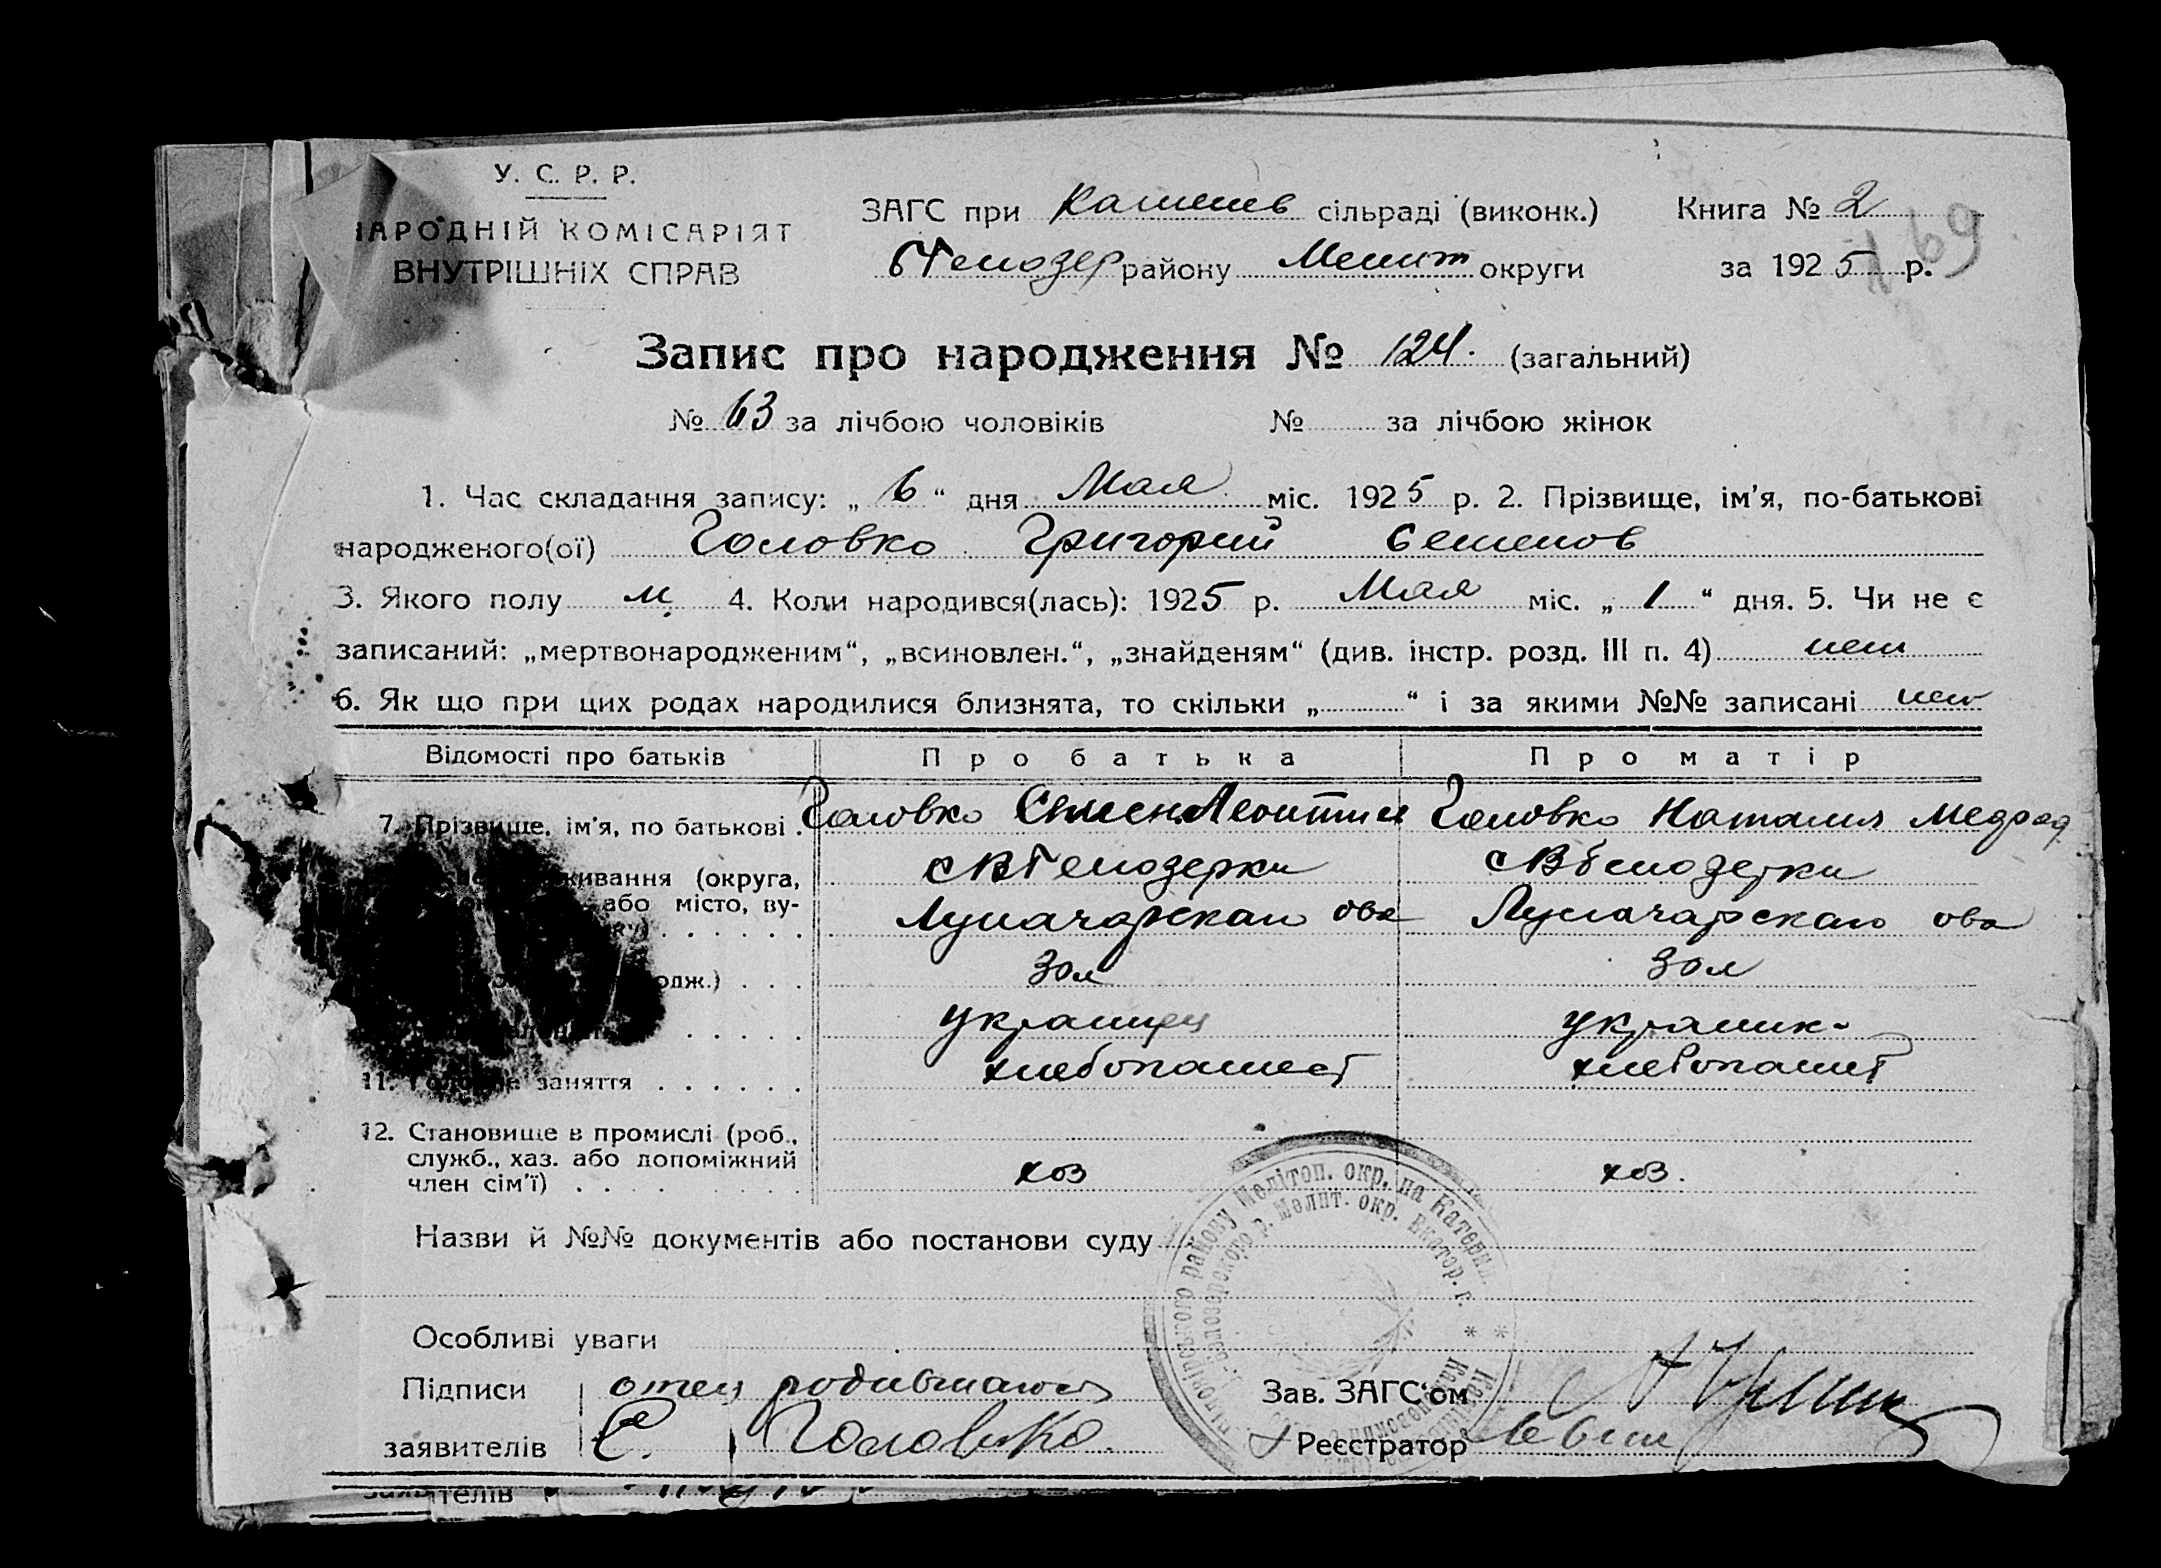 У. С. Р. Р.
НАРОДНІЙ КОМІСАРІЯТ
ВНУТРІШНІХ СПРАВ
ЗАГС при Камʼенев сільраді (виконк.)
Белозер района Мелит округи
Книга № 2
за 1925 р.
169
Запис про народження № 124. (загальний)
№ 63 за лічбою чоловіків № за лічбою жінок
1. Час складання запису: „ 6 “ дня Мая міс. 1925 р. 2. Прізвище, ім'я, по-батькові
народженого(ої) Головко Григорий Семенов
3. Якого полу м 4. Коли народився(лась): 1925 р. Мая міс. „ 1 “ дня. 5. Чи не є
записаний: „мертвонародженим“, „всиновлен.“, „знайденям“ (див. інстр. розд. III п. 4) нет
6. Як що при цих родах народилися близнята, то скільки „ “ і за якими №№ записані нет
Відомості про батьків Про батька Про матір
7. Прізвище, ім'я, по батькові . Головко Семен Леонтия Головко Наталия
живання (округа, с В Белозерки с В белозерки
або місто, ву-
Луначарская ова Луначарская ова
одж.) . . . 30 л 30 л
. . . . . украинец украинк-
11. Головне заняття . . . . . . хлебопашест хлебопашест
12. Становище в промислі (роб.,
служб., хаз. або допоміжний
член сім'ї) . . . . . . . . хоз хоз.
Назви й №№ документів або постанови суду
Особливі уваги
Підписи отец
заявителів С. Головко.
Зав. ЗАГС'ом
Реєстратор
району Мелітоп. окр. на Катерин.
р. Мелит. окр. Екатер. г.
заявителів